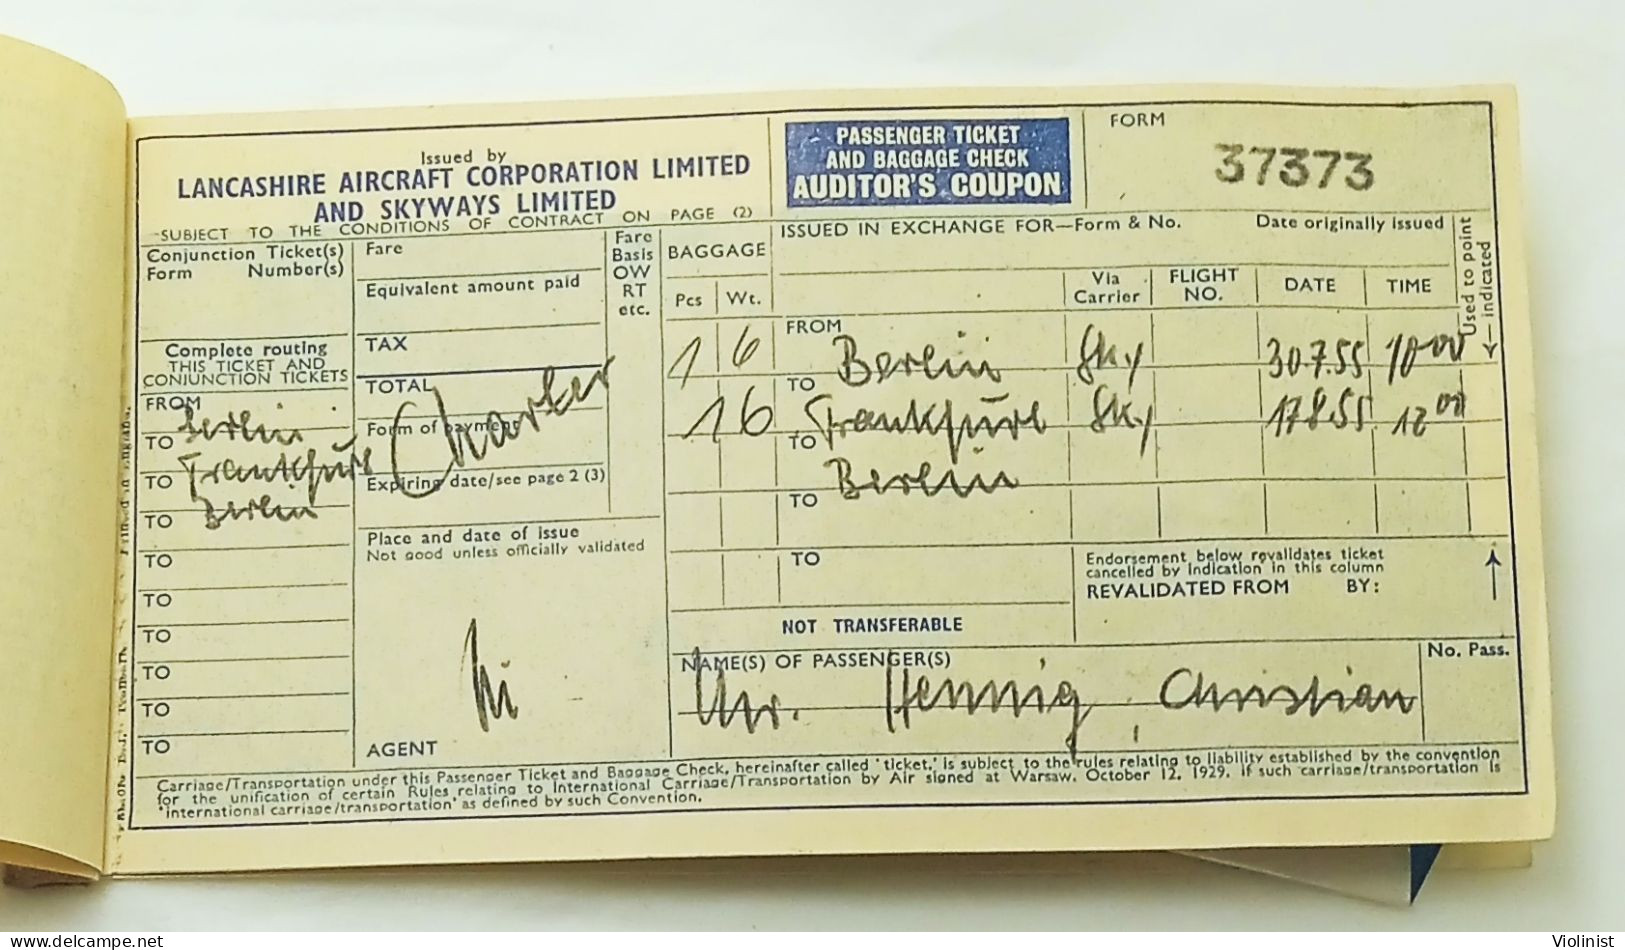 Issued by
LANCASHIRE AIRCRAFT CORPORATION LIMITED
AND SKYWAYS LIMITED
SUBJECT TO THE CONDITIONS OF CONTRACT ON PAGE (2)
PASSENGER TICKET
AND BAGGAGE CHECK
AUDITOR'S COUPON
FORM
37373
Conjunction Ticket(s)
Form Number(s)
Fare
Equivalent amount paid
TAX
TOTAL
Form of payment
Charter
Expiring date/see page 2 (3)
Fare
Basis
OW
RT
etc.
BAGGAGE
Pcs Wt.
ISSUED IN EXCHANGE FOR—Form & No. Date originally issued
Via
Carrier
FLIGHT
NO.
DATE
TIME
Used to point
indicated
Complete routing
THIS TICKET AND
CONJUNCTION TICKETS
FROM
Berlin
TO
Frankfurt
TO
Berlin
TO
TO
TO
TO
TO
TO
TO
Place and date of issue
Not good unless officially validated
AGENT
1 6 FROM Berlin Sky 30.7.55 10 00
16 TO Frankfurt Sky 17.8.55 12 00
TO Berlin
TO
TO
Endorsement below revalidates ticket
cancelled by indication in this column
REVALIDATED FROM BY:
NOT TRANSFERABLE
NAME(S) OF PASSENGER(S)
No. Pass.
Mr. Hennig, Christian
Carriage/Transportation under this Passenger Ticket and Baggage Check, hereinafter called 'ticket,' is subject to the rules relating to liability established by the convention
for the unification of certain Rules relating to International Carriage/Transportation by Air signed at Warsaw, October 12, 1929, if such carriage/transportation is
'international carriage/transportation' as defined by such Convention.
Violinist